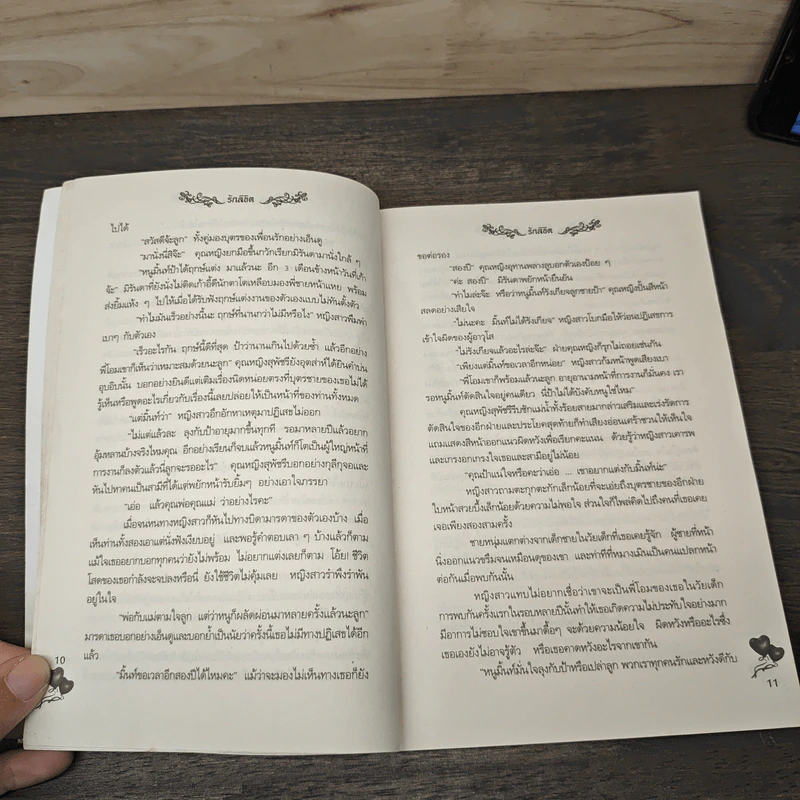 รักลิขิต
ไปได้
"สวัสดีจ้ะลูก" ทั้งคู่มองบุตรของเพื่อนรักอย่างเอ็นดู
"มานั่งนี่สิจ๊ะ" คุณหญิงยกมือขึ้นกวักเรียกมิรันตามานั่งใกล้ ๆ
"หนูมิ้นท์ป้าได้ฤกษ์แต่ง มาแล้วนะ อีก 3 เดือนข้างหน้าวันที่เก้า
จ้ะ" มิรันตาที่ยังนั่งไม่ติดเก้าอี้ดีนักตาโตเหลือบมองพี่ชายหน้าแหย พร้อม
ส่งยิ้มแห้ง ๆ ไปให้เมื่อได้รับฟังฤกษ์แต่งงานของตัวเองแบบไม่ทันตั้งตัว
"ทำไมมันเร็วอย่างนี้นะ ฤกษ์ที่นานกว่าไม่มีหรือไง" หญิงสาวพึมพำ
เบาๆ กับตัวเอง
"เร็วอะไรกัน ฤกษ์นี้ดีที่สุด ป้าว่านานเกินไปด้วยซ้ำ แล้วอีกอย่าง
พี่โอมเขาก็เห็นว่าเหมาะสมด้วยนะลูก" คุณหญิงสุพัชรียังอุตส่าห์ได้ยินคำบ่น
อุบอิบนั้น บอกอย่างยินดีแต่เติมเรื่องนิดหน่อยตรงที่บุตรชายของเธอไม่ได้
รู้เห็นหรือพูดอะไรเกี่ยวกับเรื่องนี้เลยปล่อยให้เป็นหน้าที่ของท่านทั้งหมด
"แต่มิ้นท์ว่า" หญิงสาวอึกอักหาเหตุมาปฏิเสธไม่ออก
"ไม่แต่แล้วละ ลุงกับป้าอายุมากขึ้นทุกที รอมาหลายปีแล้วอยาก
อุ้มหลานบ้างจริงไหมคุณ อีกอย่างเรียนก็จบแล้วหนูมิ้นท์ก็โตเป็นผู้ใหญ่หน้าที่
การงานก็ลงตัวแล้วนี่ลูกจะรออะไร" คุณหญิงสุพัชรีบอกอย่างกุลีกุจอและ
หันไปหาคนเป็นสามีที่ได้แต่พยักหน้ารับยิ้มๆ อย่างเอาใจภรรยา
"เอ่อ แล้วคุณพ่อคุณแม่ ว่าอย่างไรคะ"
เมื่อจนหนทางหญิงสาวก็หันไปทางบิดามารดาของตัวเองบ้าง เมื่อ
เห็นท่านทั้งสองเอาแต่นั่งฟังเงียบอยู่ และพอรู้คำตอบเลา ๆ บ้างแล้วก็ตาม
แม้ใจเธออยากบอกทุกคนว่ายังไม่พร้อม ไม่อยากแต่งเลยก็ตาม โอ้ย! ชีวิต
โสดของเธอกำลังจะจบลงหรือนี่ ยังใช้ชีวิตไม่คุ้มเลย หญิงสาวรำพึงรำพัน
อยู่ในใจ
"พ่อกับแม่ตามใจลูก แต่ว่าหนูก็ผลัดผ่อนมาหลายครั้งแล้วนะลูก"
มารดาเธอบอกอย่างเอ็นดูและบอกย้ำเป็นนัยว่าครั้งนี้เธอไม่มีทางปฏิเสธได้อีก
แล้ว
"มิ้นท์ขอเวลาอีกสองปีได้ไหมคะ" แม้ว่าจะมองไม่เห็นทางเธอก็ยัง
10
รักลิขิต
ขอต่อรอง
"สองปี" คุณหญิงอุทานพลางลูบอกตัวเองป้อย ๆ
"ค่ะ สองปี" มิรันตาพยักหน้ายืนยัน
"ทำไมล่ะจ๊ะ หรือว่าหนูมิ้นท์รังเกียจลูกชายป้า" คุณหญิงปั้นสีหน้า
สลดอย่างเสียใจ
"ไม่นะคะ มิ้นท์ไม่ได้รังเกียจ" หญิงสาวโบกมือไหว้วอนปฏิเสธการ
เข้าใจผิดของผู้อาวุโส
"ไม่รังเกียจแล้วอะไรล่ะจ๊ะ" ฝ่ายคุณหญิงก็รุกไม่ถอยเช่นกัน
"เพียงแต่มิ้นท์ขอเวลาอีกหน่อย" หญิงสาวก้มหน้าพูดเสียงเบา
"พี่โอมเขาก็พร้อมแล้วนะลูก อายุอานามหน้าที่การงานก็มั่นคง เรา
รอหนูมิ้นท์ตัดสินใจอยู่คนเดียว นี่ป้าไม่ได้บังคับหนูใช่ไหม"
คุณหญิงสุพัชรีรีบชักแม่น้ำทั้งร้อยสายมากล่าวเสริมและเร่งรัดการ
ตัดสินใจของอีกฝ่ายและประโยคสุดท้ายก็ทำเสียงอ่อนเศร้าชวนให้เห็นใจ
แถมแสดงสีหน้าออกแนวผิดหวังเพื่อเรียกคะแนน ด้วยรู้ว่าหญิงสาวเคารพ
และเกรงอกเกรงใจเธอและสามีอยู่ไม่น้อย
"คุณป้าแน่ใจหรือคะว่าเอ่อ ... เขาอยากแต่งกับมิ้นท์น่ะ"
หญิงสาวถามตะกุกตะกักเล็กน้อยที่จะเอ่ยถึงบุตรชายของอีกฝ่าย
ใบหน้าสวยบึ้งเล็กน้อยด้วยความไม่พอใจ ส่วนใจก็ไพล่คิดไปถึงคนที่เธอเคย
เจอเพียงสองสามครั้ง
ชายหนุ่มแตกต่างจากเด็กชายในวัยเด็กที่เธอเคยรู้จัก ผู้ชายที่หน้า
นิ่งออกแนวขรึมจนเหมือนดุของเขา และท่าทีที่หมางเมินเป็นคนแปลกหน้า
ต่อกันเมื่อพบกันนั้น
หญิงสาวแทบไม่อยากเชื่อว่าเขาจะเป็นพี่โอมของเธอในวัยเด็ก
การพบกันครั้งแรกในรอบหลายปีนั้นทำให้เธอเกิดความไม่ประทับใจอย่างมาก
มีอาการไม่ชอบใจเขาขึ้นมาดื้อๆ จะด้วยความน้อยใจ ผิดหวังหรืออะไรซึ่ง
เธอเองยังไม่อาจรู้ตัว หรือเธอคาดหวังอะไรจากเขากัน
"หนูมิ้นท์มั่นใจลุงกับป้าหรือเปล่าลูก พวกเราทุกคนรักและหวังดีกับ
11